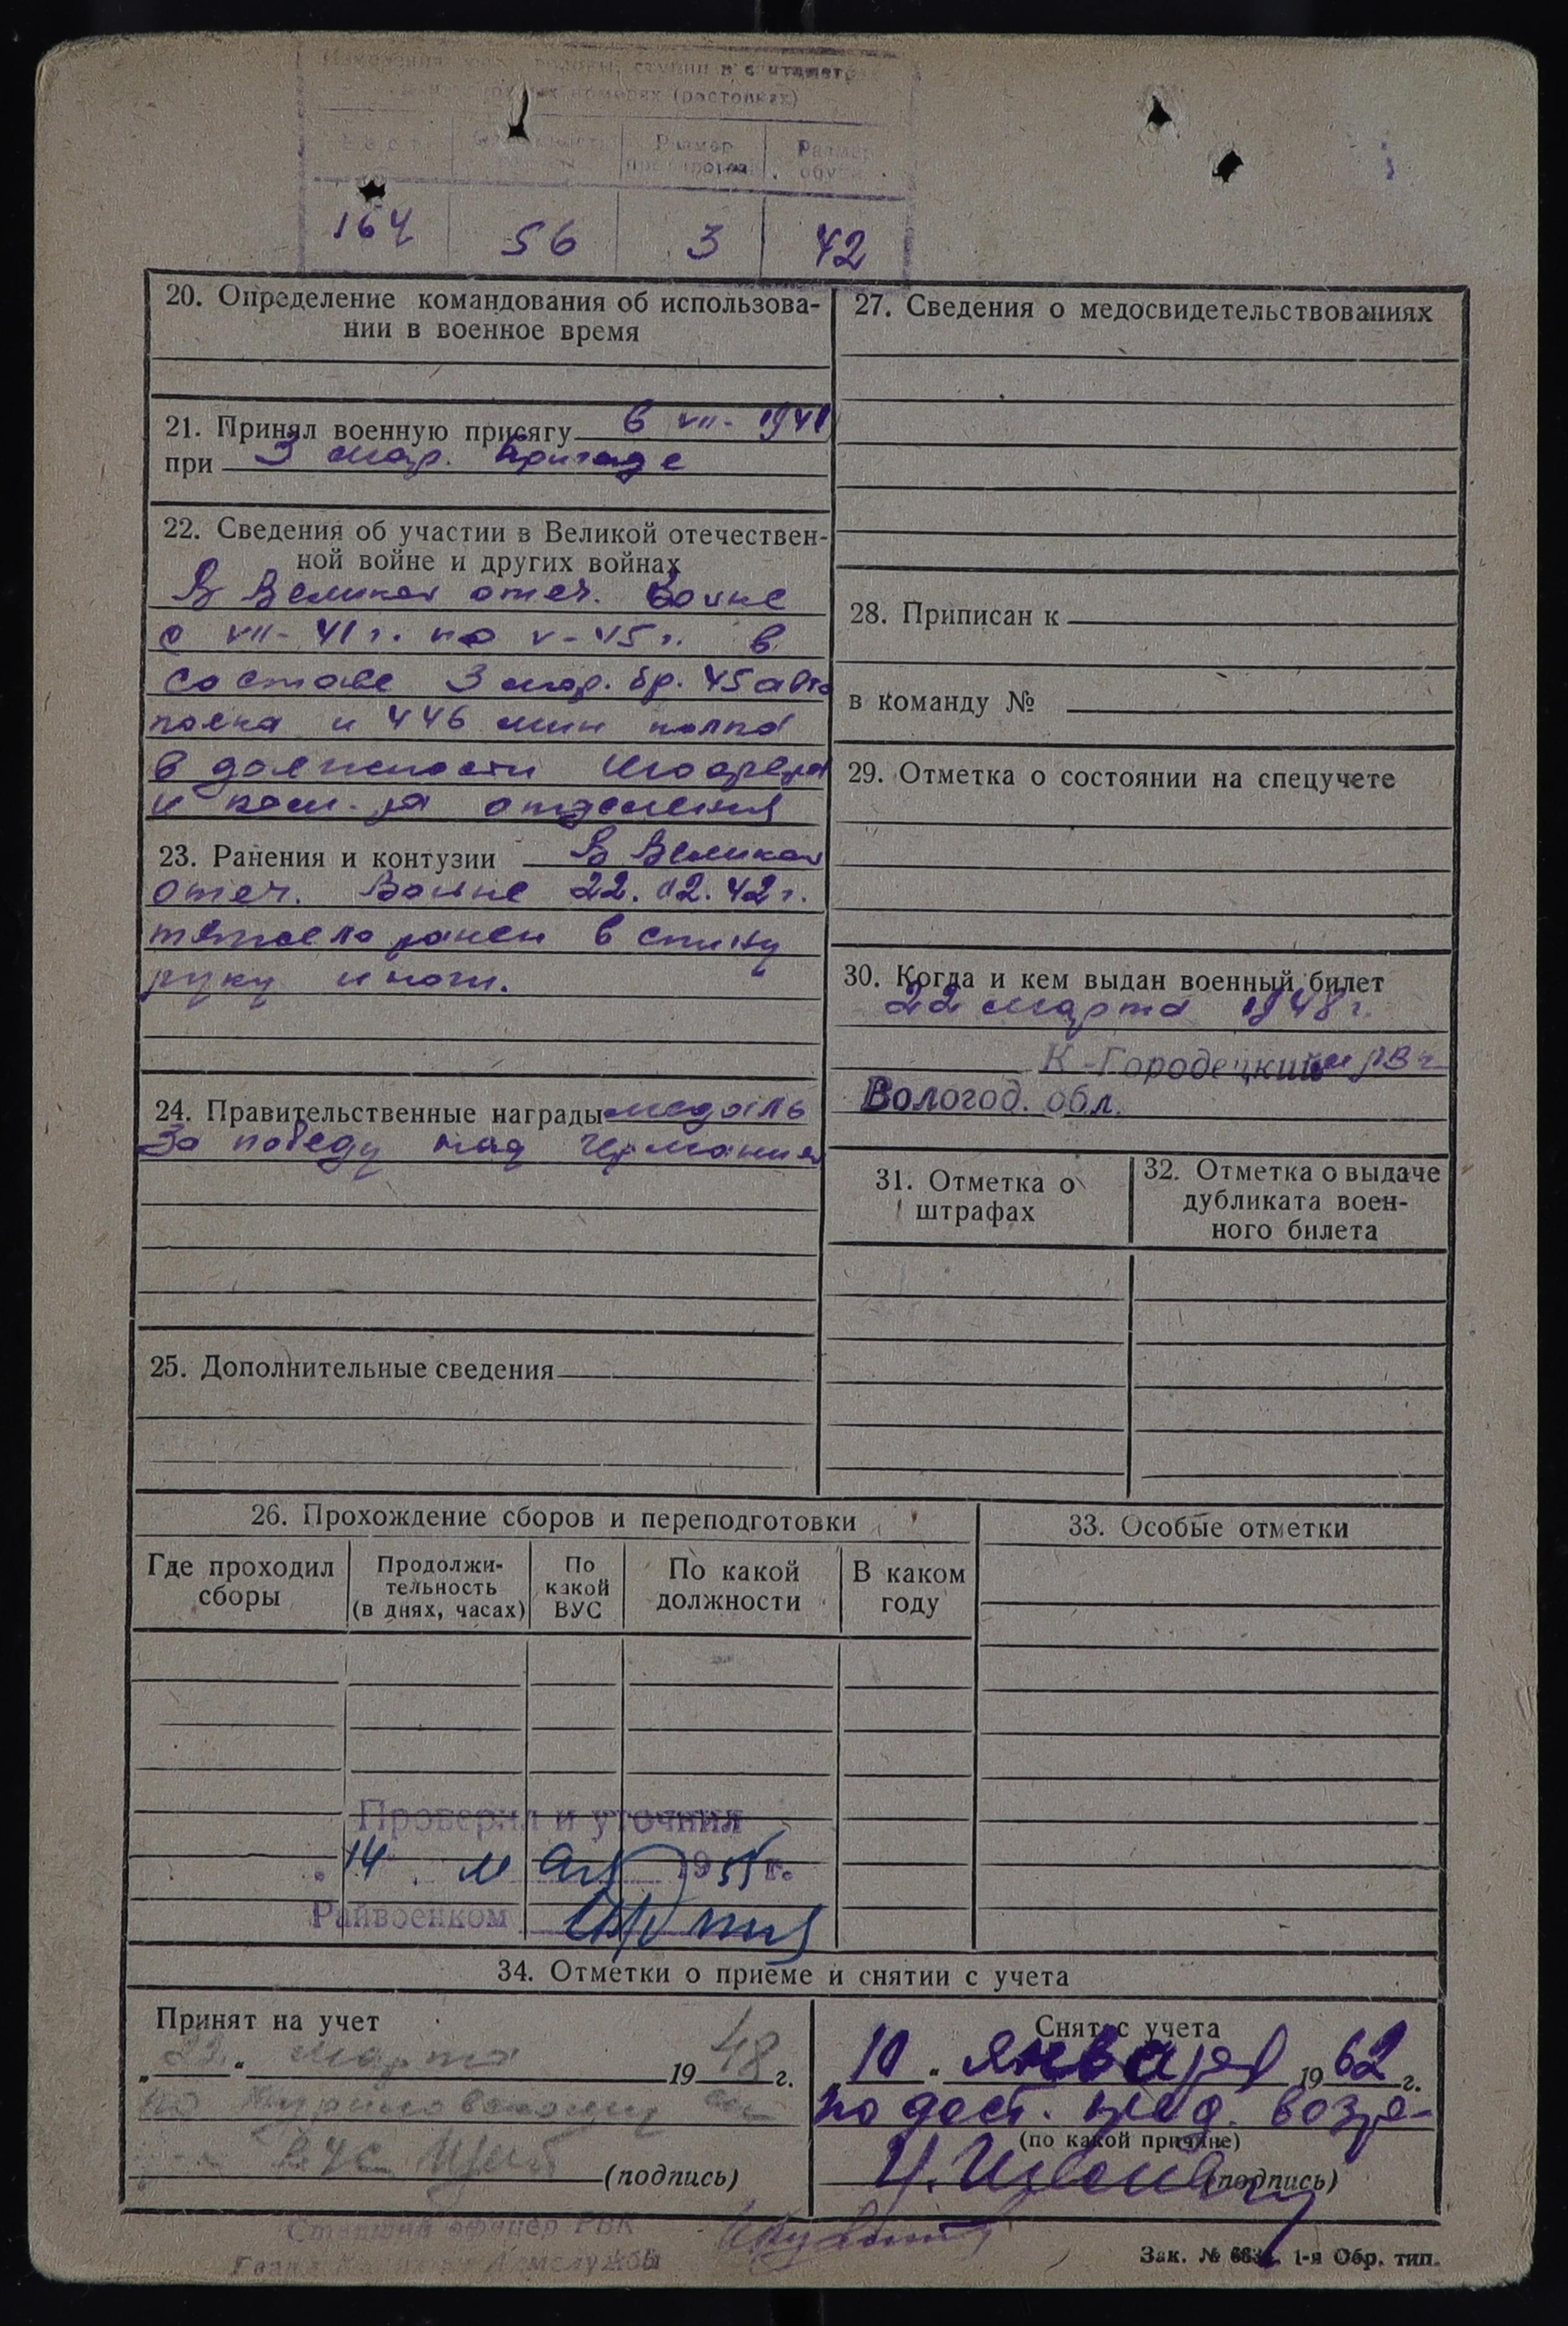 (ростовках)
Размер
Размер
164 56 3 42
20. Определение командования об использова-
нии в военное время
21. Принял военную присягу 6 VII- 1941
при 3 мор. бригаде
22. Сведения об участии в Великой отечествен-
ной войне и других войнах
В Великой отеч. Войне
с VII-41г. по V-45г. в
составе 3 мор. бр. 45 авто
полка и 446 мин полка
в должности шофера
и ком-ра отделения
23. Ранения и контузии В Великой
отеч. Войне 22.02.42г.
тяжело ранен в спину
руку и ноги.
24. Правительственные награды медаль
За победу над Германией
25. Дополнительные сведения
27. Сведения о медосвидетельствованиях
28. Приписан к
в команду №
29. Отметка о состоянии на спецучете
30. Когда и кем выдан военный билет
22 марта 1948г.
К-Городецким РВК
Вологод. обл.
31. Отметка о
штрафах
32. Отметка о выдаче
дубликата воен-
ного билета
26. Прохождение сборов и переподготовки
Где проходил
сборы
Продолжи-
тельность
(в днях, часах)
По
какой
ВУС
По какой
должности
В каком
году
Проверил и уточнил
14 мая 1955 г.
Райвоенком
33. Особые отметки
34. Отметки о приеме и снятии с учета
Принят на учет
„22“ марта 1948 г.
по
ВУС
(подпись)
Снят с учета
„10“ января 1962 г.
по дост. пред. возра-
(по какой причине)
(подпись)
Старший офицер РВК
Зак. № 1-я Обр. тип.